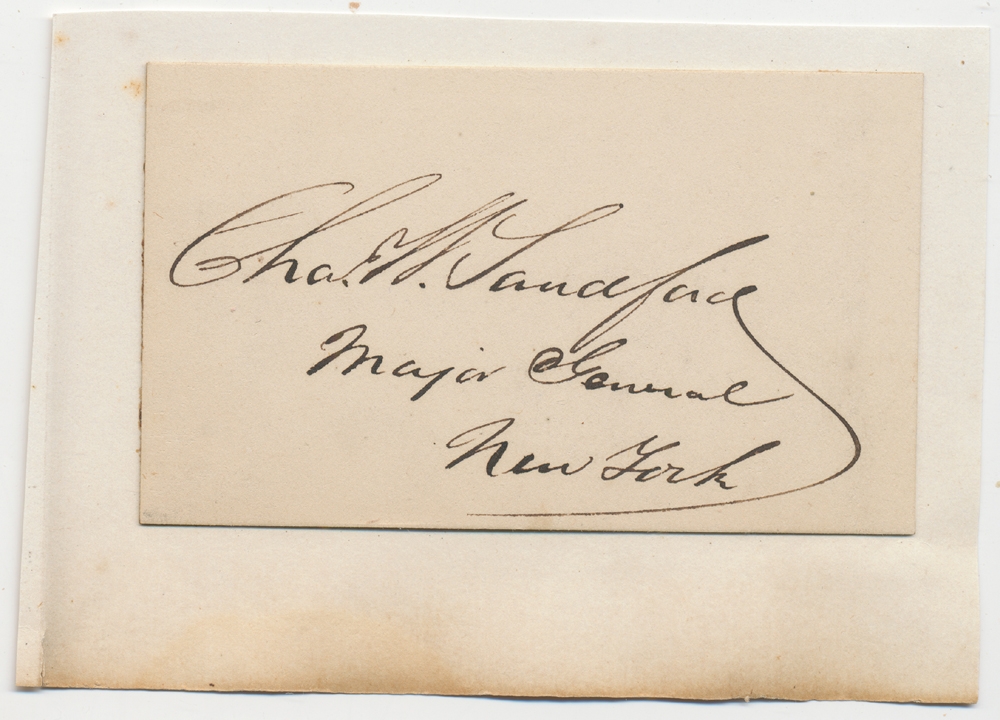 Chas. W. Sandford
Major General
New York